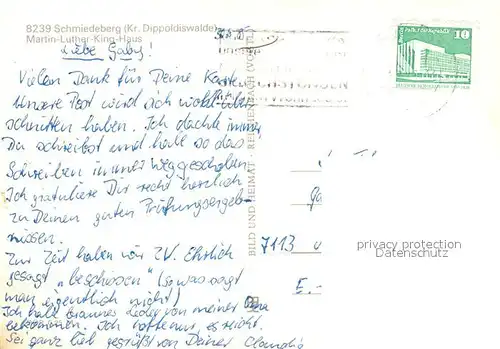 8239 Schmiedeberg (Kr. Dippoldiswalde)
Martin-Luther-King-Haus
Liebe Gaby!
Vielen Dank für Deine Karten
Unsere Post wird sich wohl über-
schnitten haben. Ich dachte immer
Du schreibst und habe so das
Schreiben immer weggeschoben
Ich gratuliere Dir recht herzlich
zu Deinen guten Prüfungsergeb-
nissen.
Zur Zeit haben wir ZV. Ehrlich
gesagt „beschissen" (sowas sagt
man eigentlich nicht)
Ich habe braunes Leder von meiner Oma
bekommen. Ich hoffe nur es reicht.
Sei ganz lieb gegrüßt von Deiner Claudia
BILD UND HEIMAT REICHENBACH (VOGTL)
10
7113
E.-
privacy protection
Datenschutz